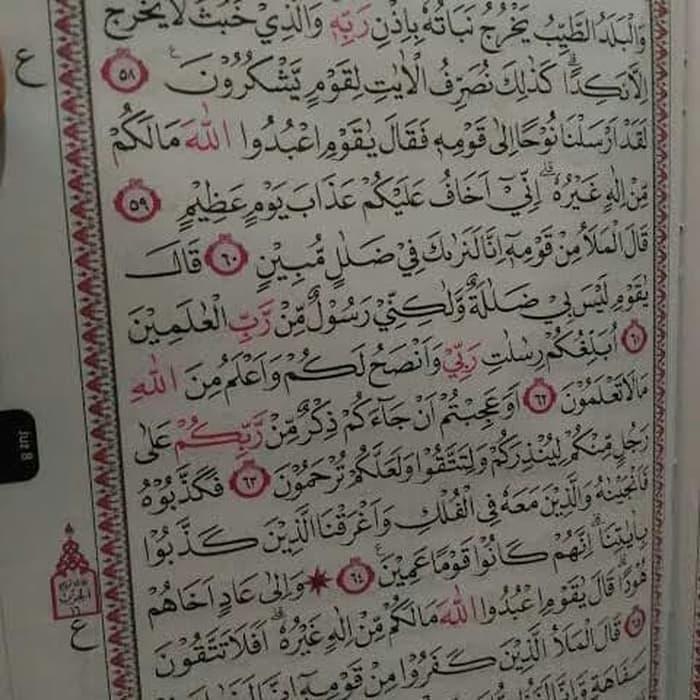 وَالْبَلَدُ الطَّيِّبُ يَخْرُجُ نَبَاتُهٗ بِاِذْنِ رَبِّهٖ وَالَّذِيْ خَبُثَ لَا يَخْرُجُ
اِلَّا نَكِدًا ۗ كَذٰلِكَ نُصَرِّفُ الْاٰيٰتِ لِقَوْمٍ يَّشْكُرُوْنَ ࣖ ٥٨
لَقَدْ اَرْسَلْنَا نُوْحًا اِلٰى قَوْمِهٖ فَقَالَ يٰقَوْمِ اعْبُدُوا اللّٰهَ مَا لَكُمْ
مِّنْ اِلٰهٍ غَيْرُهٗ ۗ اِنِّيْٓ اَخَافُ عَلَيْكُمْ عَذَابَ يَوْمٍ عَظِيْمٍ ٥٩
قَالَ الْمَلَاُ مِنْ قَوْمِهٖٓ اِنَّا لَنَرٰىكَ فِيْ ضَلٰلٍ مُّبِيْنٍ ٦٠ قَالَ
يٰقَوْمِ لَيْسَ بِيْ ضَلٰلَةٌ وَّلٰكِنِّيْ رَسُوْلٌ مِّنْ رَّبِّ الْعٰلَمِيْنَ
٦١ اُبَلِّغُكُمْ رِسٰلٰتِ رَبِّيْ وَاَنْصَحُ لَكُمْ وَاَعْلَمُ مِنَ اللّٰهِ
مَا لَا تَعْلَمُوْنَ ٦٢ اَوَعَجِبْتُمْ اَنْ جَاۤءَكُمْ ذِكْرٌ مِّنْ رَّبِّكُمْ عَلٰى
رَجُلٍ مِّنْكُمْ لِيُنْذِرَكُمْ وَلِتَتَّقُوْا وَلَعَلَّكُمْ تُرْحَمُوْنَ ٦٣ فَكَذَّبُوْهُ
فَاَنْجَيْنٰهُ وَالَّذِيْنَ مَعَهٗ فِى الْفُلْكِ وَاَغْرَقْنَا الَّذِيْنَ كَذَّبُوْا
بِاٰيٰتِنَا ۗ اِنَّهُمْ كَانُوْا قَوْمًا عَمِيْنَ ࣖ ٦٤ ۞ وَاِلٰى عَادٍ اَخَاهُمْ
هُوْدًا ۗ قَالَ يٰقَوْمِ اعْبُدُوا اللّٰهَ مَا لَكُمْ مِّنْ اِلٰهٍ غَيْرُهٗ ۗ اَفَلَا تَتَّقُوْنَ
٦٥ قَالَ الْمَلَاُ الَّذِيْنَ كَفَرُوْا مِنْ قَوْمِهٖٓ اِنَّا لَنَرٰىكَ
سَفَاهَةٍ
ع
Juz 8
ع